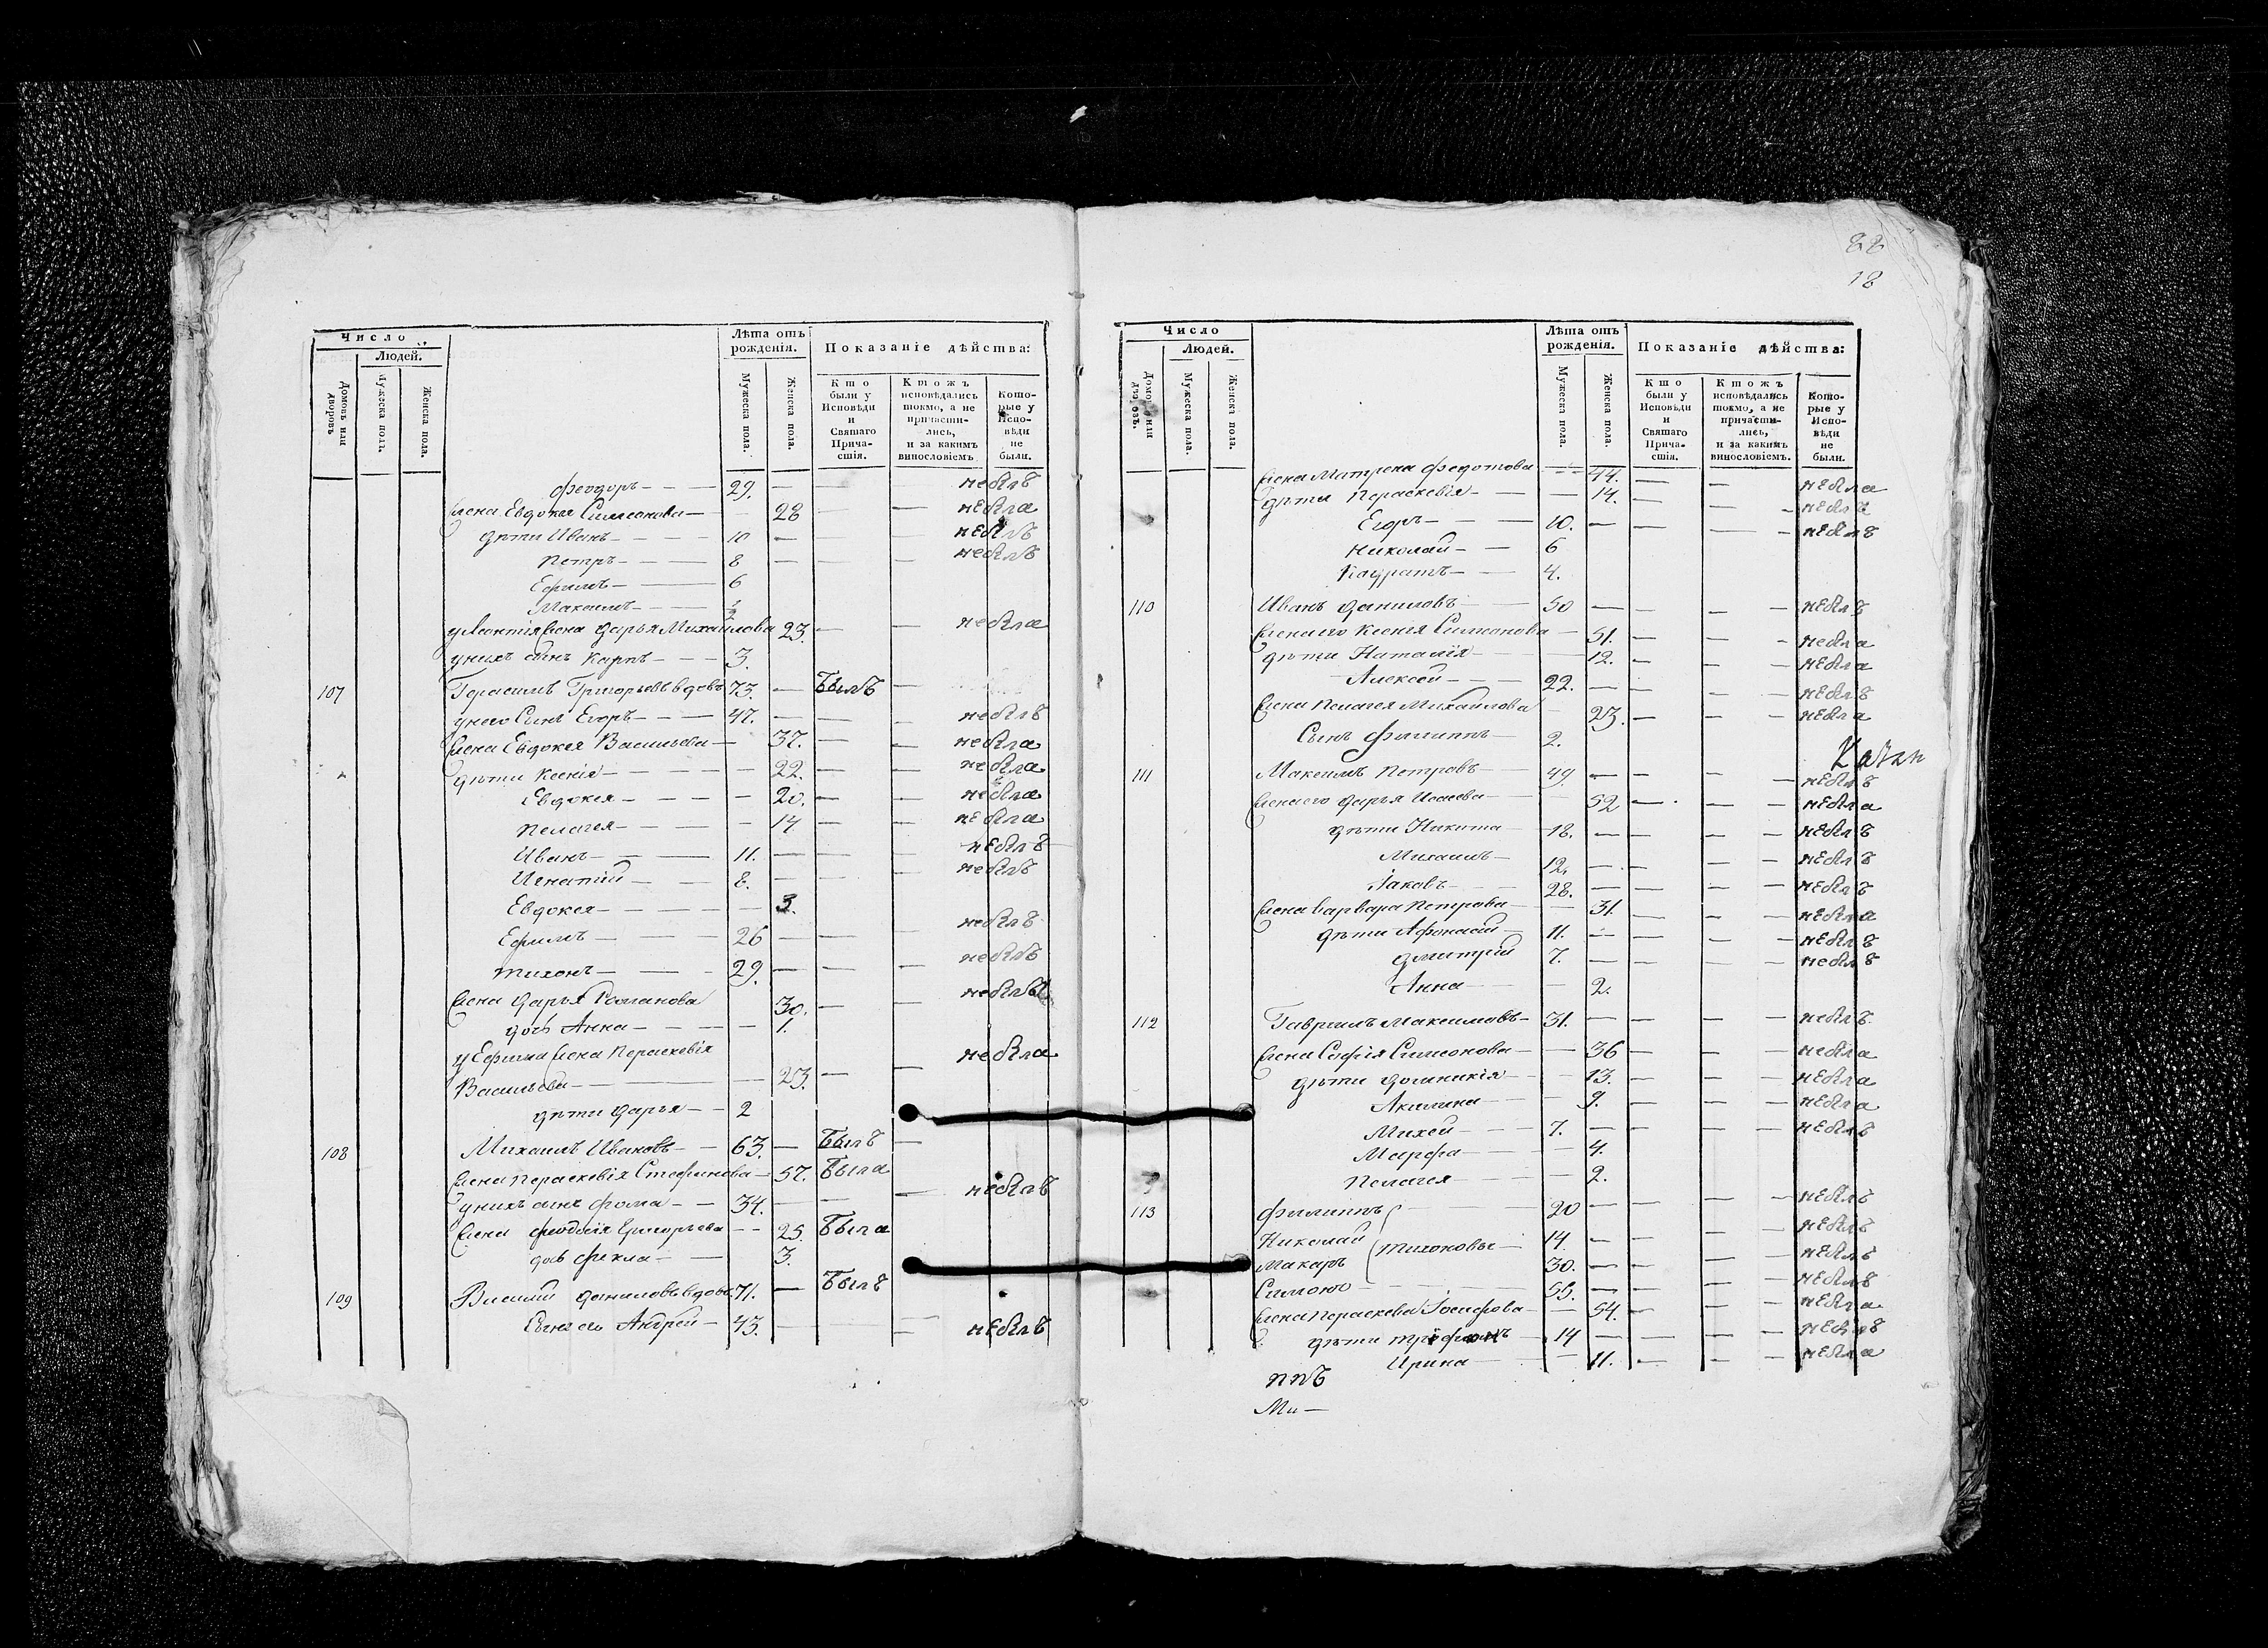 Число
Людей.
Домовъ или дворовъ
Мужеска полъ.
Женска пола.
Лѣта отъ рожденія.
Мужеска пола.
Женска пола.
Показаніе дѣйства:
Кто были у Исповѣди и Святаго Причастія.
Ктожъ исповѣдались токмо, а не причастились, и за какимъ винословіемъ
Которые у Исповѣди не были.
Феодоръ — 29. — — небылъ
жена Евдокея Симеонова — 28 — — небыла
дѣти Иванъ — 10 — — небылъ
Петръ — 8 — — — небылъ
Ефимъ — 6
Максимъ —
у Леонтія жена Дарья Михайлова 23. — — небыла
у нихъ сынъ Карпъ — 3.
107 Герасимъ Григорьевъ вдовъ 73. — Былъ —
у него Сынъ Егоръ — 47. — — — небылъ
жена Евдокея Васильева — 37. — — небыла
дѣти Ксенія — — 22. — — небыла
Евдокея — — 20. — — небыла
Пелагея — — 14 — — небыла
Иванъ — 11. — — — небылъ
Игнатій — 8. — — — небылъ
Евдокея — — 3.
Ефимъ — 26 — — — небылъ
Тихонъ — 29. — — — небылъ
жена Дарья Романова 30. — —
дочь Анна — — 1.
у Ефима жена Пераскевія небыла
Васильева — — 23. — —
дѣти Дарья — 2
108 Михаилъ Ивановъ — 63. — Былъ —
жена Пераскевія Стефанова — 57. Была
у нихъ сынъ Фома — 34. — — — небылъ
жена Феодосія Григорьева — 25. Была
дочь Фекла — 3.
109 Василий Даниловъ вдовъ 71. — Былъ
Сынъ его Андрей — 43. — — — небылъ
22
18
Число
Людей.
Домовъ или дворовъ.
Мужеска пола.
Женска пола.
Лѣта отъ рожденія.
Мужеска пола.
Женска пола.
Показаніе дѣйства:
Кто были у Исповѣди и Святаго Причастія.
Ктожъ исповѣдались токмо, а не причастились, и за какимъ винословіемъ.
Которые у Исповѣди не были.
жена Матрена Федотова — 44. — — небыла
дѣти Пераскевія — — 14. — —
Егоръ — 10. — — — небылъ
Николай — 6
Кодратъ — 4.
110 Иванъ Даниловъ — 50 — — — небылъ
жена его Ксенія Симеонова — 51. — — небыла
дѣти Наталія — 12. — — небыла
Алексѣй — 22. — — — небылъ
жена Пелагея Михайлова — 23. — — небыла
Сынъ Филиппъ — 2.
111 Максимъ Петровъ — 49. — — — небылъ
жена его Дарья Исаева — 52 — — небыла
дѣти Никита — 18. — — — небылъ
Михаилъ — 12. — — — небылъ
Іаковъ — 28. — — — небылъ
жена Варвара Петрова — — 31. — — небыла
дѣти Афонасій — 11. — — — небылъ
Дмитрій 7. — — — небылъ
Анна — — 2.
112 Гаврилъ Максимовъ — 31. — — — небылъ
жена Софія Симеонова — — 36 — — небыла
дѣти Домникія — — 13. — — небыла
Акилина — — 9. — — небыла
Михей — 7. — — — небылъ
Марфа — — 4.
Пелагея — — 2.
113 Филиппъ — 20 — — — небылъ
Николай 14. — — — небылъ
Тихоновы —
Макаръ 30. — — — небылъ
Симонъ — 55. — — — небылъ
жена Пераскева Іосифова — — 54. — — небыла
дѣти Трифонъ — 14 — — — небылъ
Ирина — — 11. — — небыла
Ми —